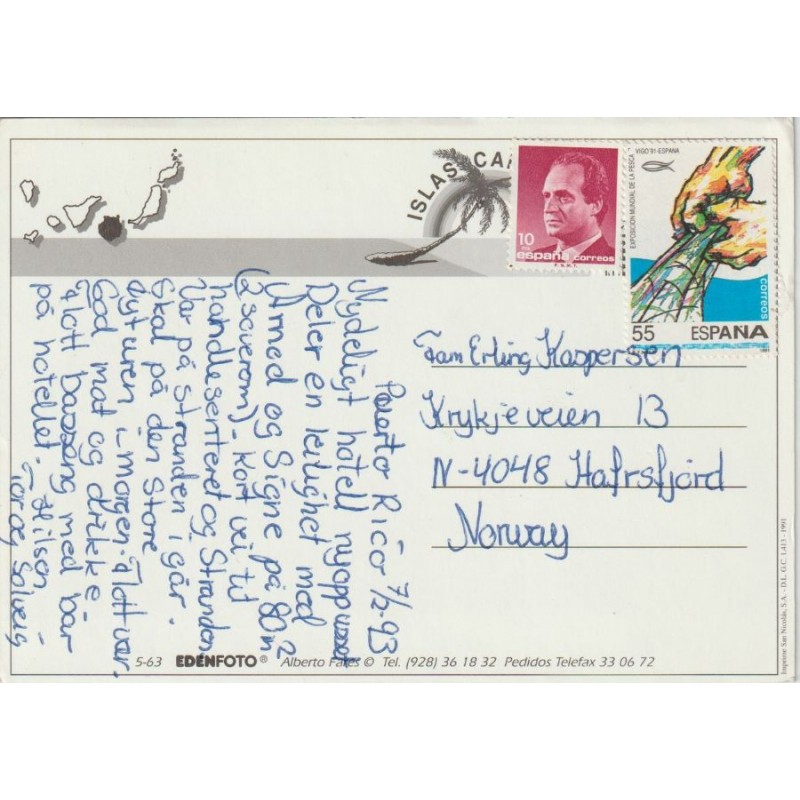 ISLAS CA
10
PTA
españa correos
F.N.M.T.
VIGO '91-ESPAÑA
EXPOSICION MUNDIAL DE LA PESCA
correos
55 ESPAÑA
1991
Puerto Rico 7/2-93
Nydeligt hotell nyoppusset
Deler en leilighet med
Armed og Signe på 80m2
(2 soverom) - Kort vei til
handlesenteret og Stranden
Var på stranden i går.
Skal på den Store
øyturen i morgen. Flott vær.
God mat og drikke
Flott basseng med bar
på hotellet. Hilsen
Tor og Solveig
Fam Erling Kaspersen
Krykjeveien 13
N-4048 Hafrsfjord
Norway
5-63 EDENFOTO® Alberto Fares © Tel. (928) 36 18 32 Pedidos Telefax 33 06 72
Imprime San Nicolás, S.A. - D.L. G.C. 1.413 - 1991